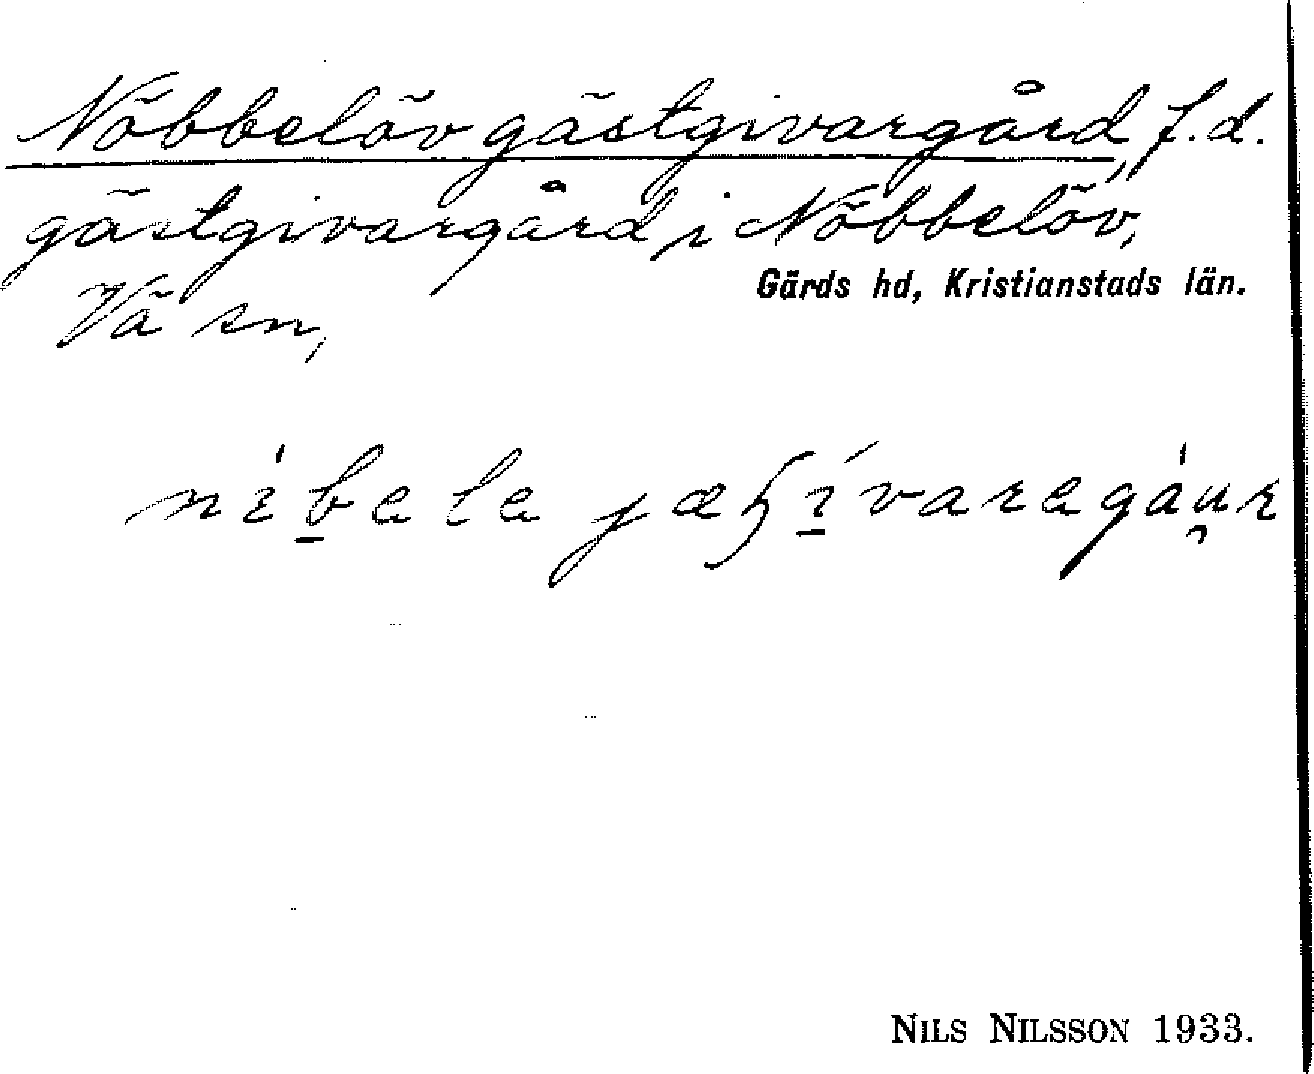 Nöbbelöv gästgivargård, f.d.
gästgivargård i Nöbbelöv,
Gärds hd, Kristianstads län.
Vä sn,
NILS NILSSON 1933.